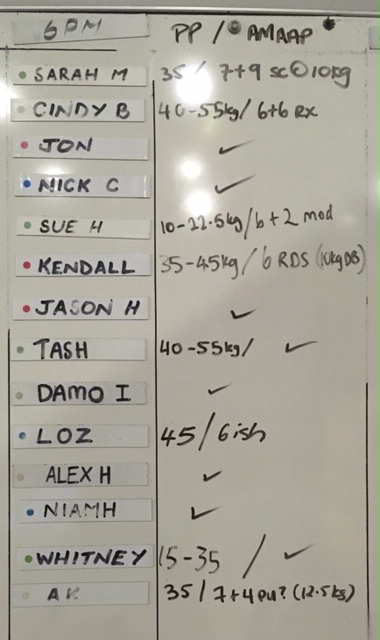 6PM PP / AMAAP *
SARAH M 35 / 7+9 SC@10kg
CINDY B 40-55kg / 6+6 Rx
JON ✓
NICK C ✓
SUE H 10-22.5kg / 6+2 mod
KENDALL 35-45kg / 6 RDS (10kg DB)
JASON H ✓
TASH 40-55kg / ✓
DAMO I ✓
LOZ 45 / 6ish
ALEX H ✓
NIAMH ✓
WHITNEY 15-35 / ✓
AK 35 / 7+4 PU? (12.5kg)